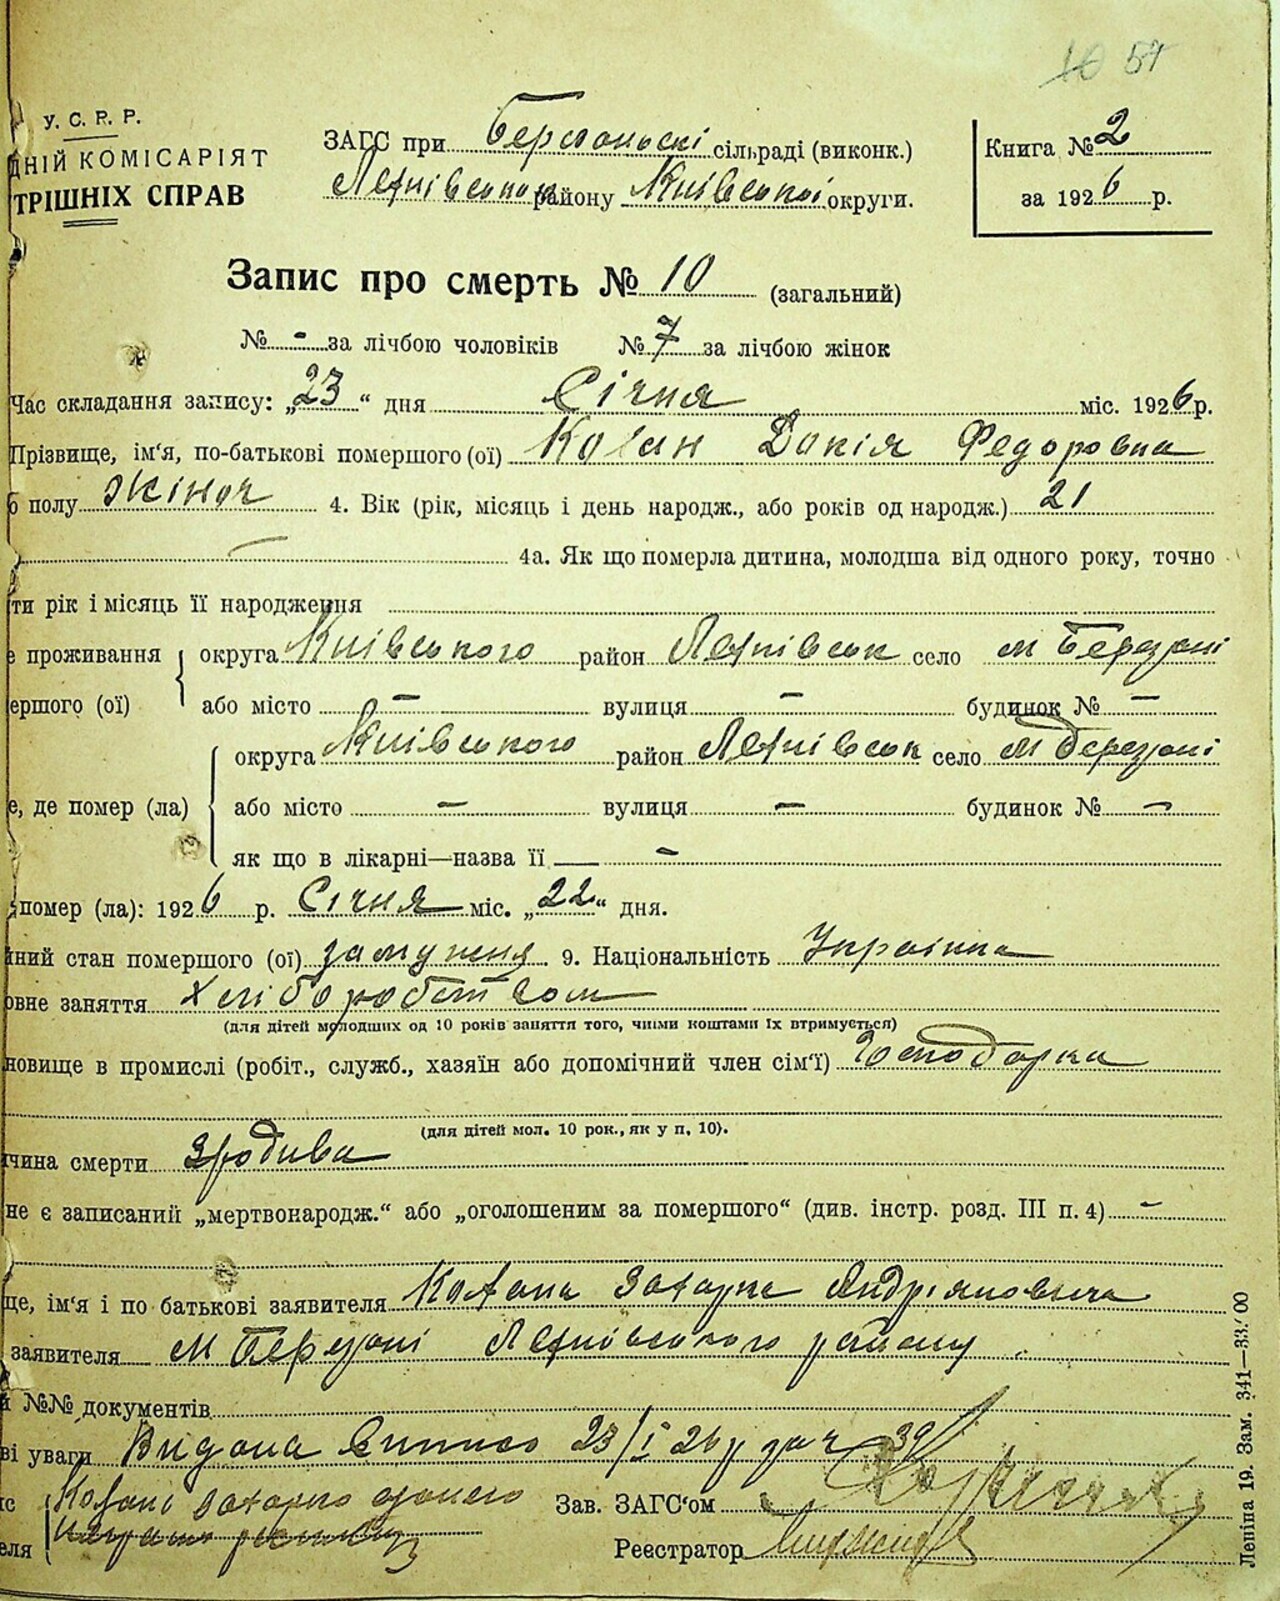 57
У. С. Р. Р.
ДНІЙ КОМІСАРІЯТ
ТРІШНІХ СПРАВ
ЗАГС при сільраді (виконк.)
району Київської округи.
Книга № 2
за 1926 р.
Запис про смерть № 10 (загальний)
№ - за лічбою чоловіків № 7 за лічбою жінок
Час складання запису: „23“ дня Січня міс. 1926 р.
Прізвище, ім'я, по-батькові помершого (ої) Докія Федоровна
полу жіноч 4. Вік (рік, місяць і день народж., або років од народж.) 21
4а. Як що померла дитина, молодша від одного року, точно
ти рік і місяць її народження
е проживання округа Київського район село м Березані
ершого (ої) або місто — вулиця — будинок № —
округа Київського район село м Березані
е, де помер (ла) або місто — вулиця — будинок № —
як що в лікарні—назва її -
помер (ла): 1926 р. Січня міс. „22“ дня.
ний стан помершого (ої) замужня 9. Національність Украінка
овне заняття Хліборобством
(для дітей молодших од 10 років заняття того, чиїми коштами їх втримується)
новище в промислі (робіт., служб., хазяїн або допомічний член сім'ї) Господарка
(для дітей мол. 10 рок., як у п. 10).
чина смерти
не є записаний „мертвонародж.“ або „оголошеним за помершого“ (див. інстр. розд. III п. 4) -
ще, ім'я і по батькові заявителя Андріяновича
заявителя м Березані району
й №№ документів
ві уваги Видана 23/I 26 р за № 39
Зав. ЗАГС'ом
еля Реєстратор
Леніна 19. Зам. 341—33.000